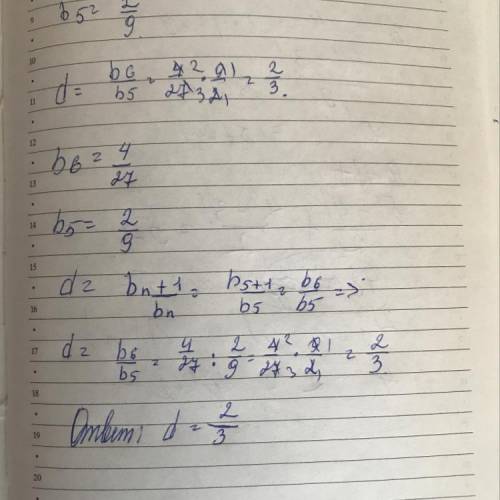 b5= 2/9
9
10
d= b6/b5 = 4²/27₃ · 9¹/2₁ = 2/3.
11
12
b6 = 4/27
13
14
b5= 2/9
15
d= bn+1/bn = b5+1/b5 = b6/b5 =>
16
17 d= b6/b5 = 4/27 : 2/9 = 4²/27₃ · 9¹/2₁ = 2/3
18
19 Ответ: d = 2/3
20